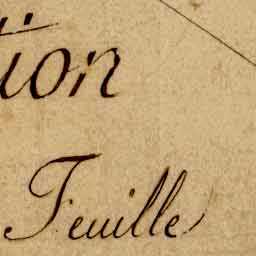 tion
Feuille